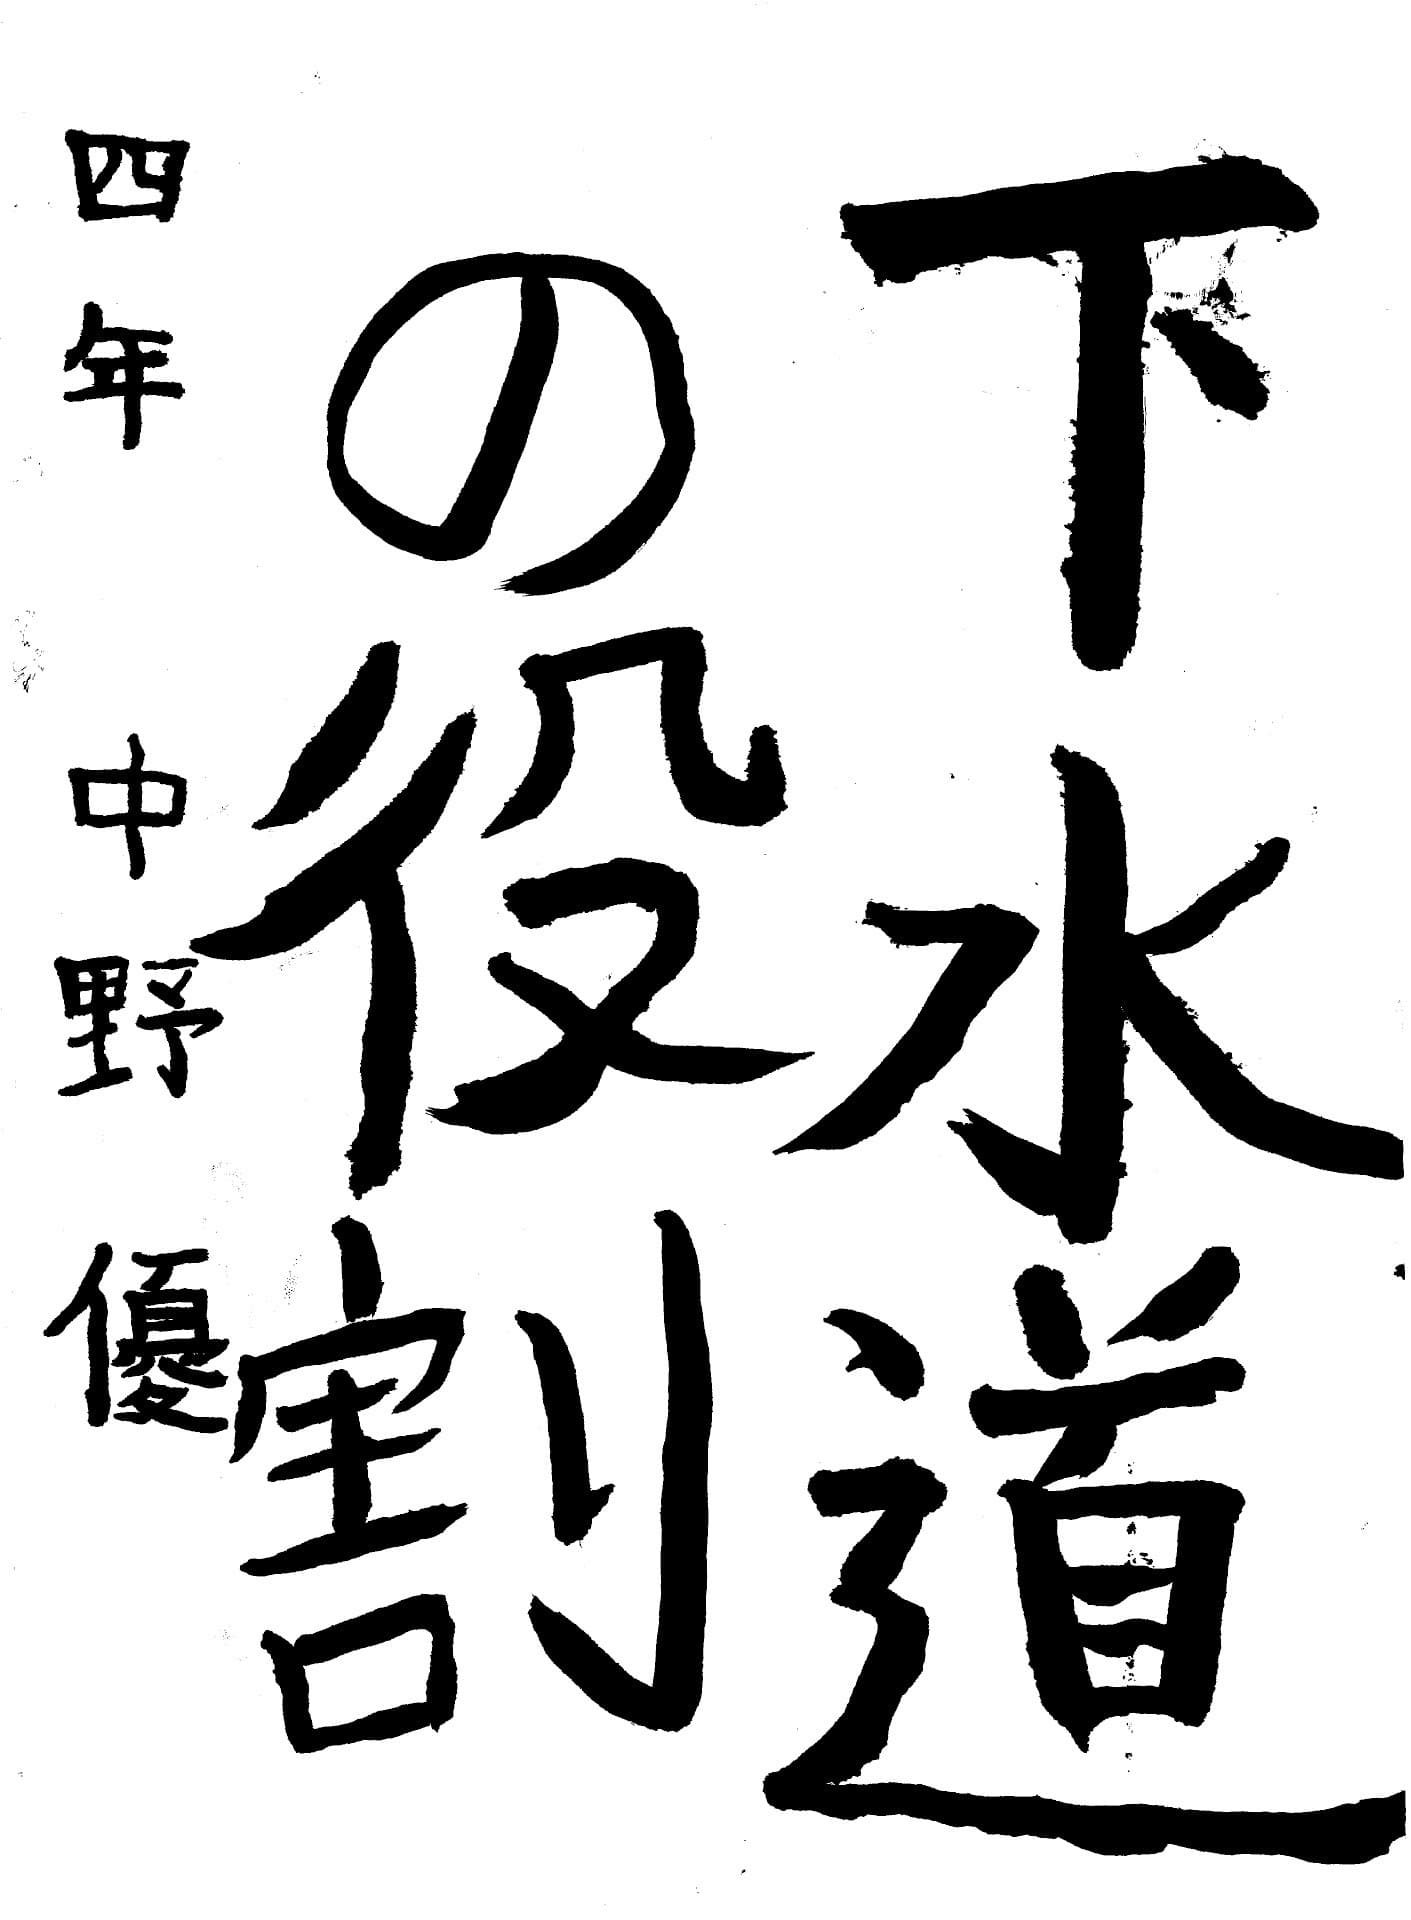 下水道
の役割
四年 中野 優